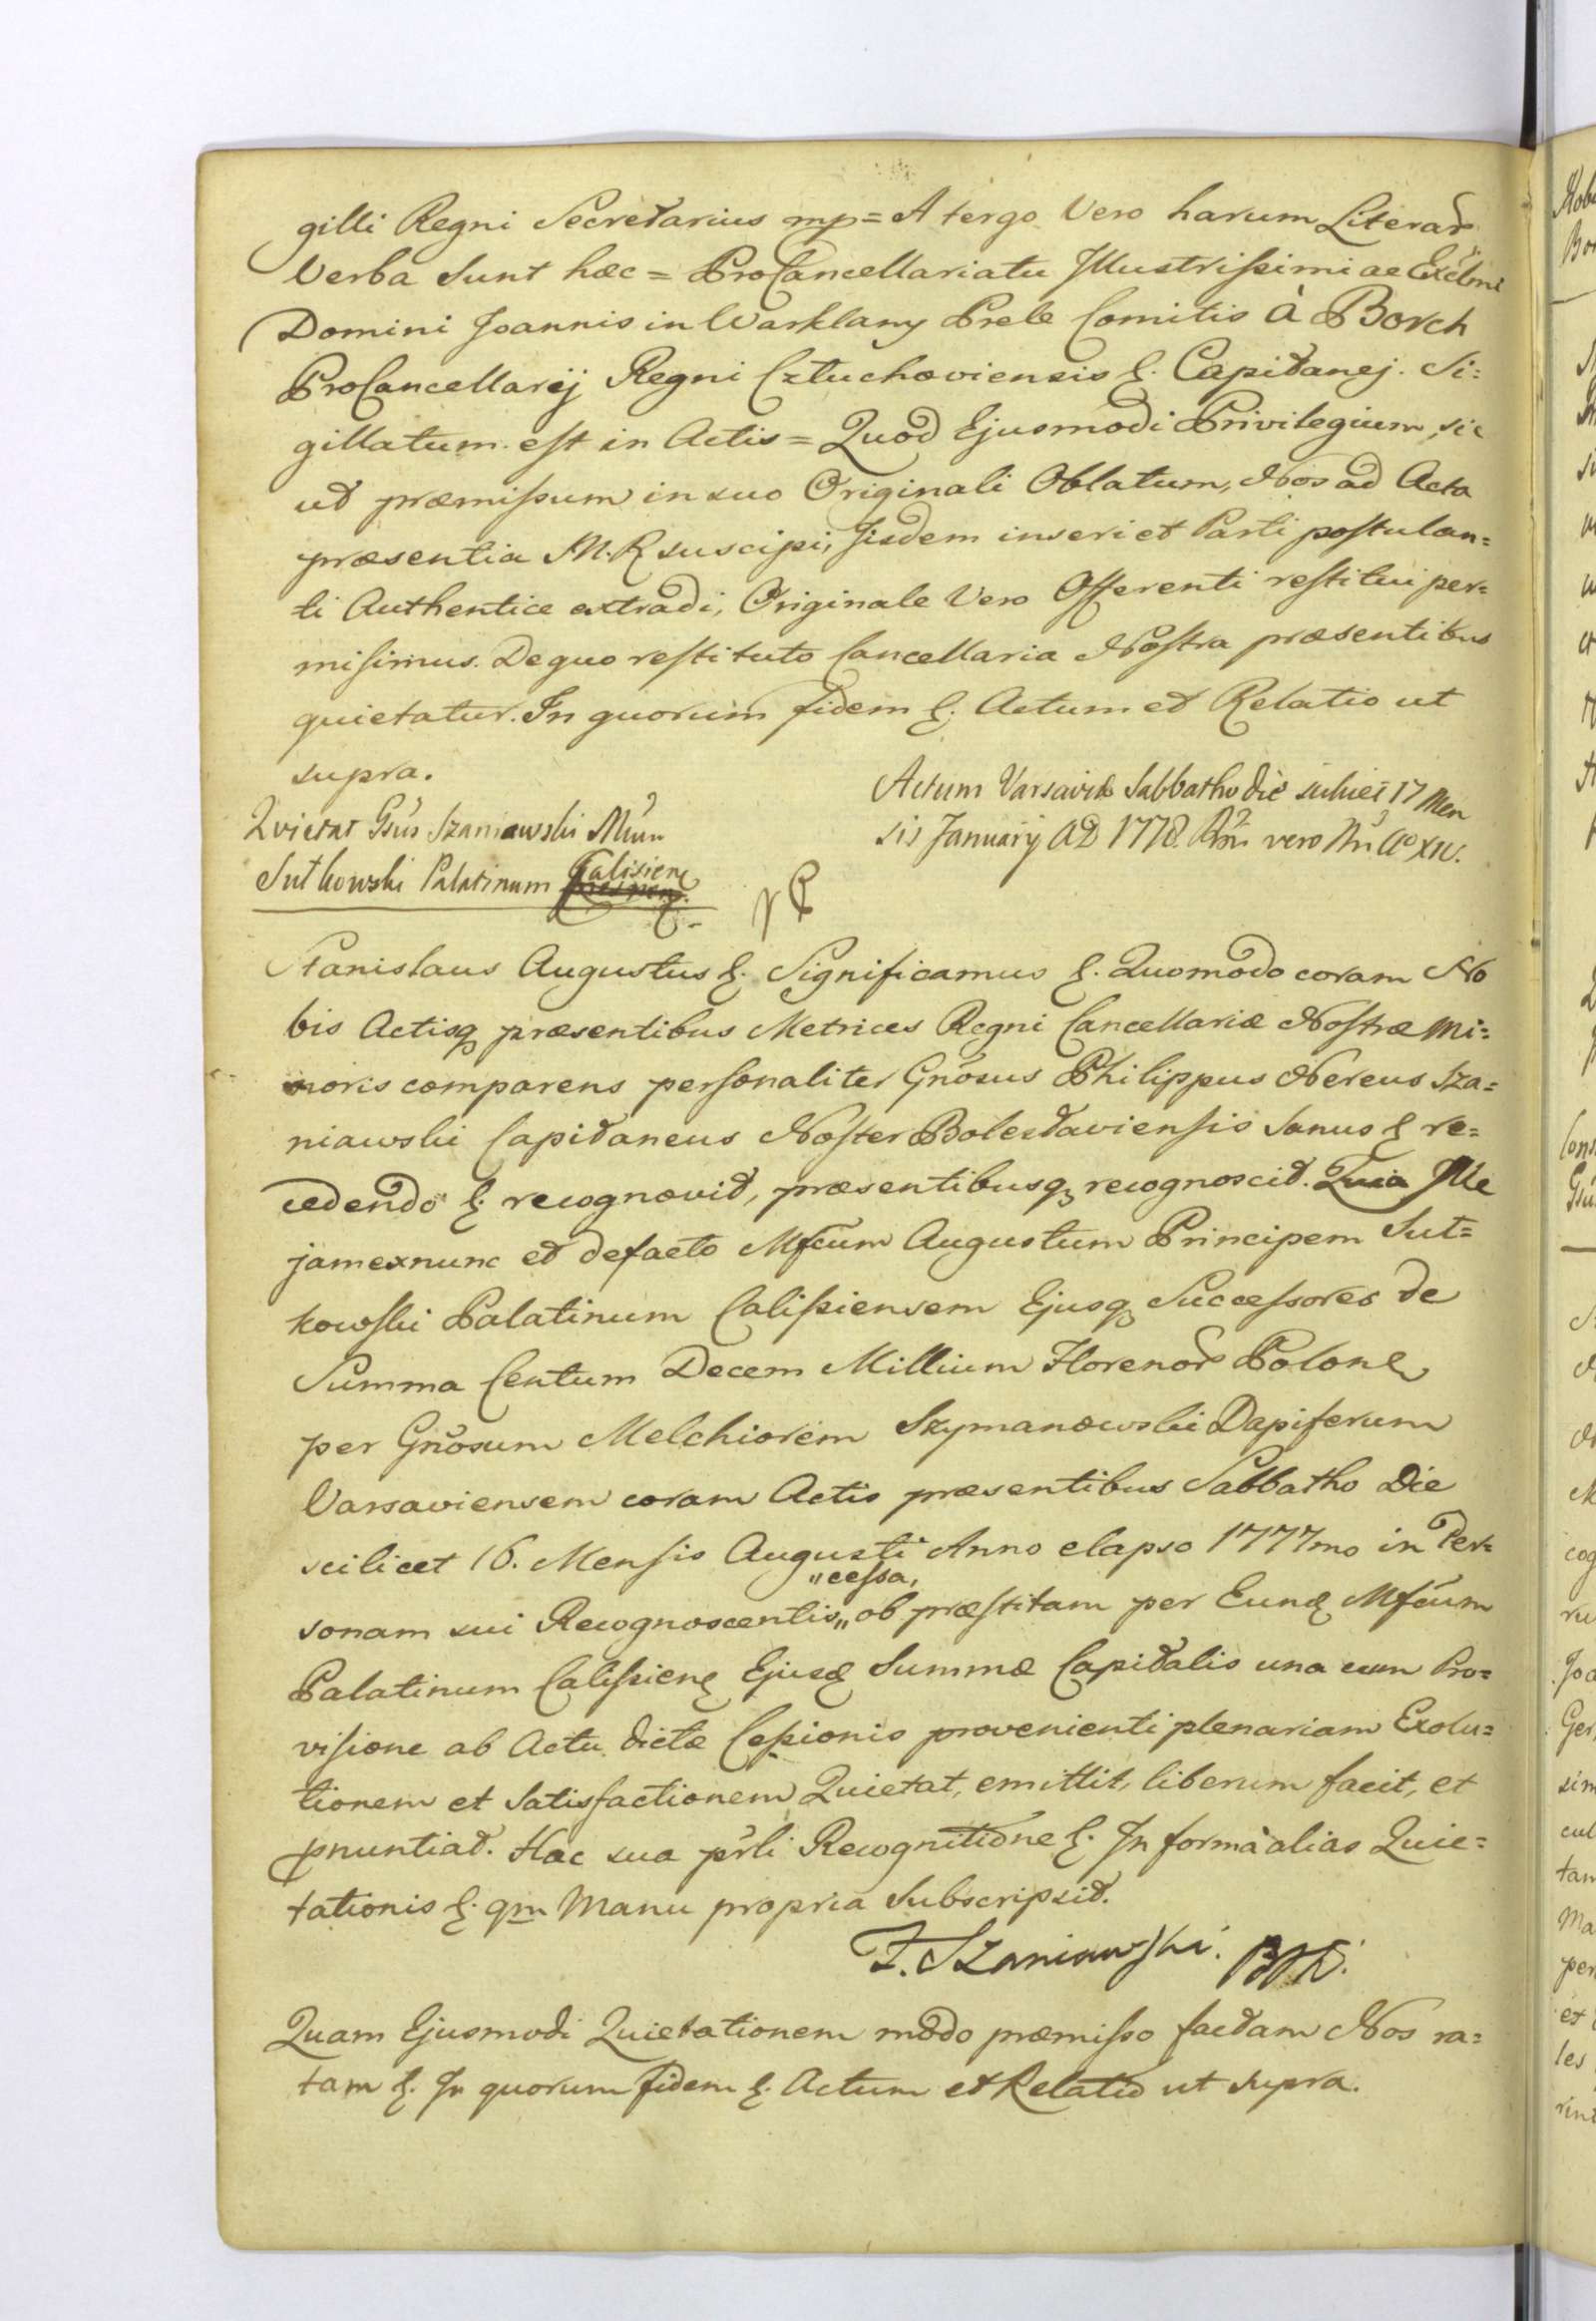 gilli Regni Secretarius mp = A tergo Vero harum Literar
Verba Sunt hæc = ProCancellariatu Illustrissimi ac Excelmi
Domini Joannis in Warklany Prele Comitis à Borch
ProCancellarij Regni Cztuchoviensis &. Capitanej. Si=
gillatum est in Actis = Quod Ejusmodi Privilegium, sic
ut præmissum in suo Originali Oblatum, Nos ad Acta
præsentia M. R suscipi, Jisdem inseri et Parti postulan=
ti Authentice extradi, Originale Vero Offerenti restitui per=
misimus. De quo restituto Cancellaria Nostra præsentibus
quietatur. In quorum fidem &. Actum et Relatio ut
supra.
Actum Varsaviæ Sabbatho die 17 Men
sis Januarij AD 1778. vero Aº XIV.
Quietat Gsus Szaniawski
Sutkowski Palatinum Calisien
Stanislaus Augustus &. Significamus &. Quomodo coram No
bis Actisq præsentibus Metrices Regni Cancellariæ Nostræ Mi=
noris comparens personaliter Gnosus Philippus Nereus Sza=
niawski Capitaneus Noster Bolestaviensis Sanus & re=
cedendo &. recognovit, præsentibusq recognoscit. Quia Ille
jam exnunc et defacto Mfcum Augustum Principem Sut=
kowski Palatinum Calissiensem Ejusq Successores de
Summa Centum Decem Millium Florenor Polon
per Gnosum Melchiorem Szymanowski Dapiferum
Varsaviensem coram Actis præsentibus Sabbatho Die
scilicet 16. Mensis Augusti Anno elapso 1777mo in Per=
"cessa,
sonam sui Recognoscentis,, ob præstitam per Eund Mfcum
Palatinum Calissien Ejusd Summæ Capitalis una cum Pro=
visione ab Actu dictæ Cessionis provenienti plenariam Exolu=
tionem et Satisfactionem Quietat, emittit, liberum facit, et
pnuntiat. Hac sua pnli Recognitione &. In forma alias Quie=
tationis &. qm Manu propria Subscripsit.
F. Szaniawski.
Quam Ejusmodi Quietationem modo præmisso factam Nos ra=
tam &. In quorum fidem &. Actum et Relatio ut supra.